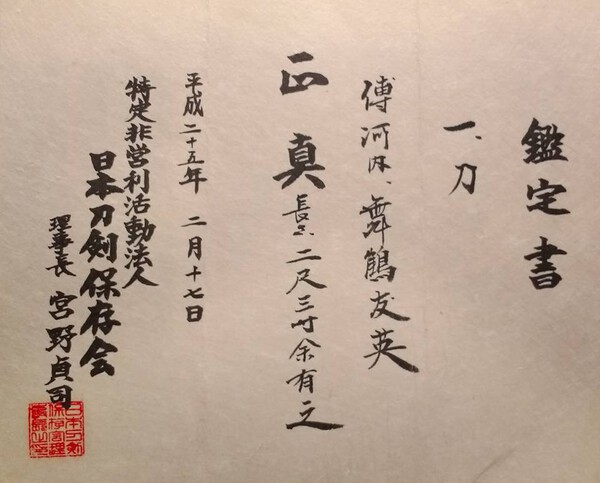 鑑定書
一、刀
傳河内、舞鶴友英
正真 長さ二尺三寸余有之
平成二十五年 二月十七日
特定非営利活動法人
日本刀剣保存会
理事長 宮野貞司
日本刀剣
保存会理
事長之印